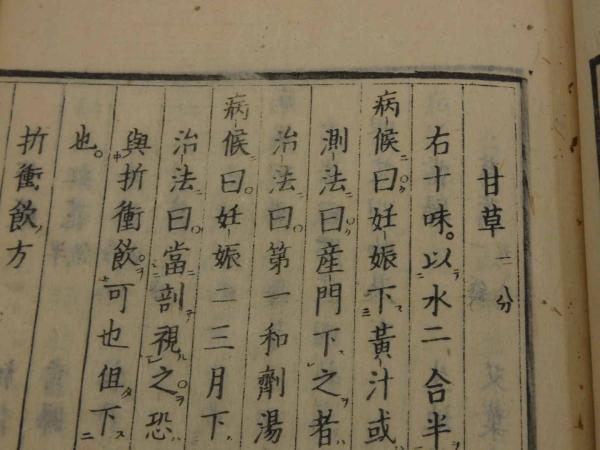 甘草 一分
右十味。以水二合半
病候曰妊娠下黃汁或
測法曰産門下之者
治法曰第一和劑湯
病候曰妊娠二三月下
治法曰當剖視之恐
與折衝飲可也但下
也。
折衝飲方